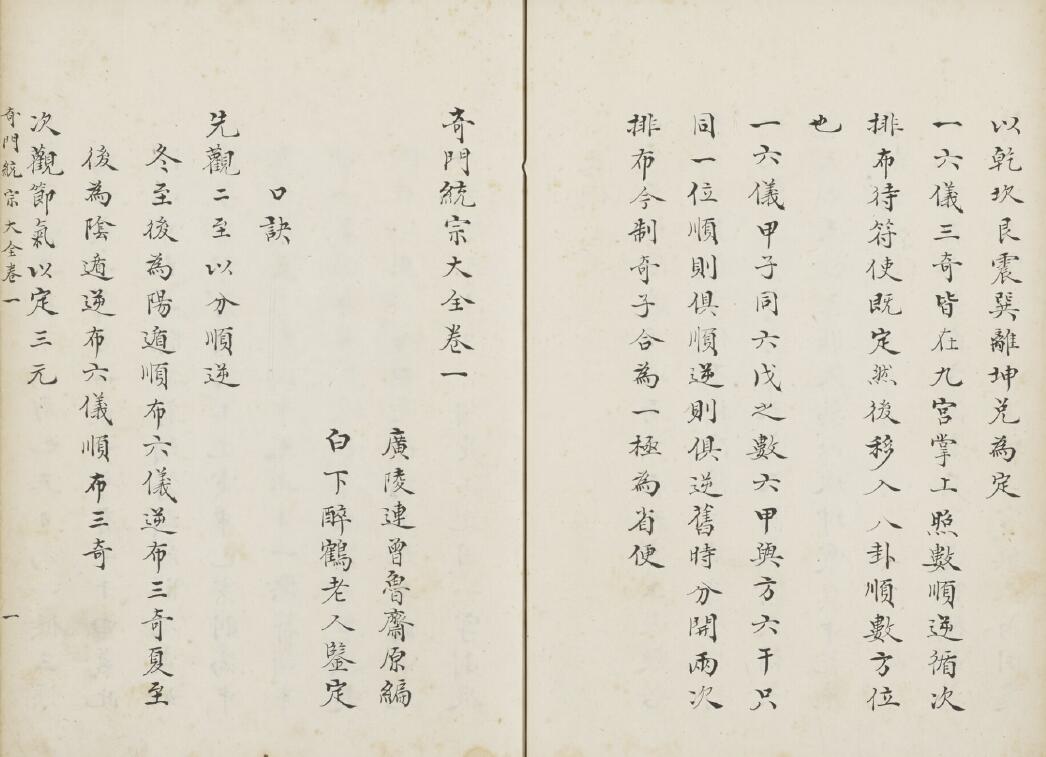 以乾坎艮震巽離坤兌為定
一六儀三奇皆在九宮掌上照數順逆循次
排布待符使既定然後移入八卦順數方位
也
一六儀甲子同六戊之數六甲與方六干只
同一位順則俱順逆則俱逆舊時分開兩次
排布今制奇子合為一極為省便
奇門統宗大全卷一
廣陵連曾魯齋原編
白下醉鶴老人鑒定
口訣
先觀二至以分順逆
冬至後為陽遁順布六儀逆布三奇夏至
後為陰遁逆布六儀順布三奇
次觀節氣以定三元
奇門統宗大全卷一 一